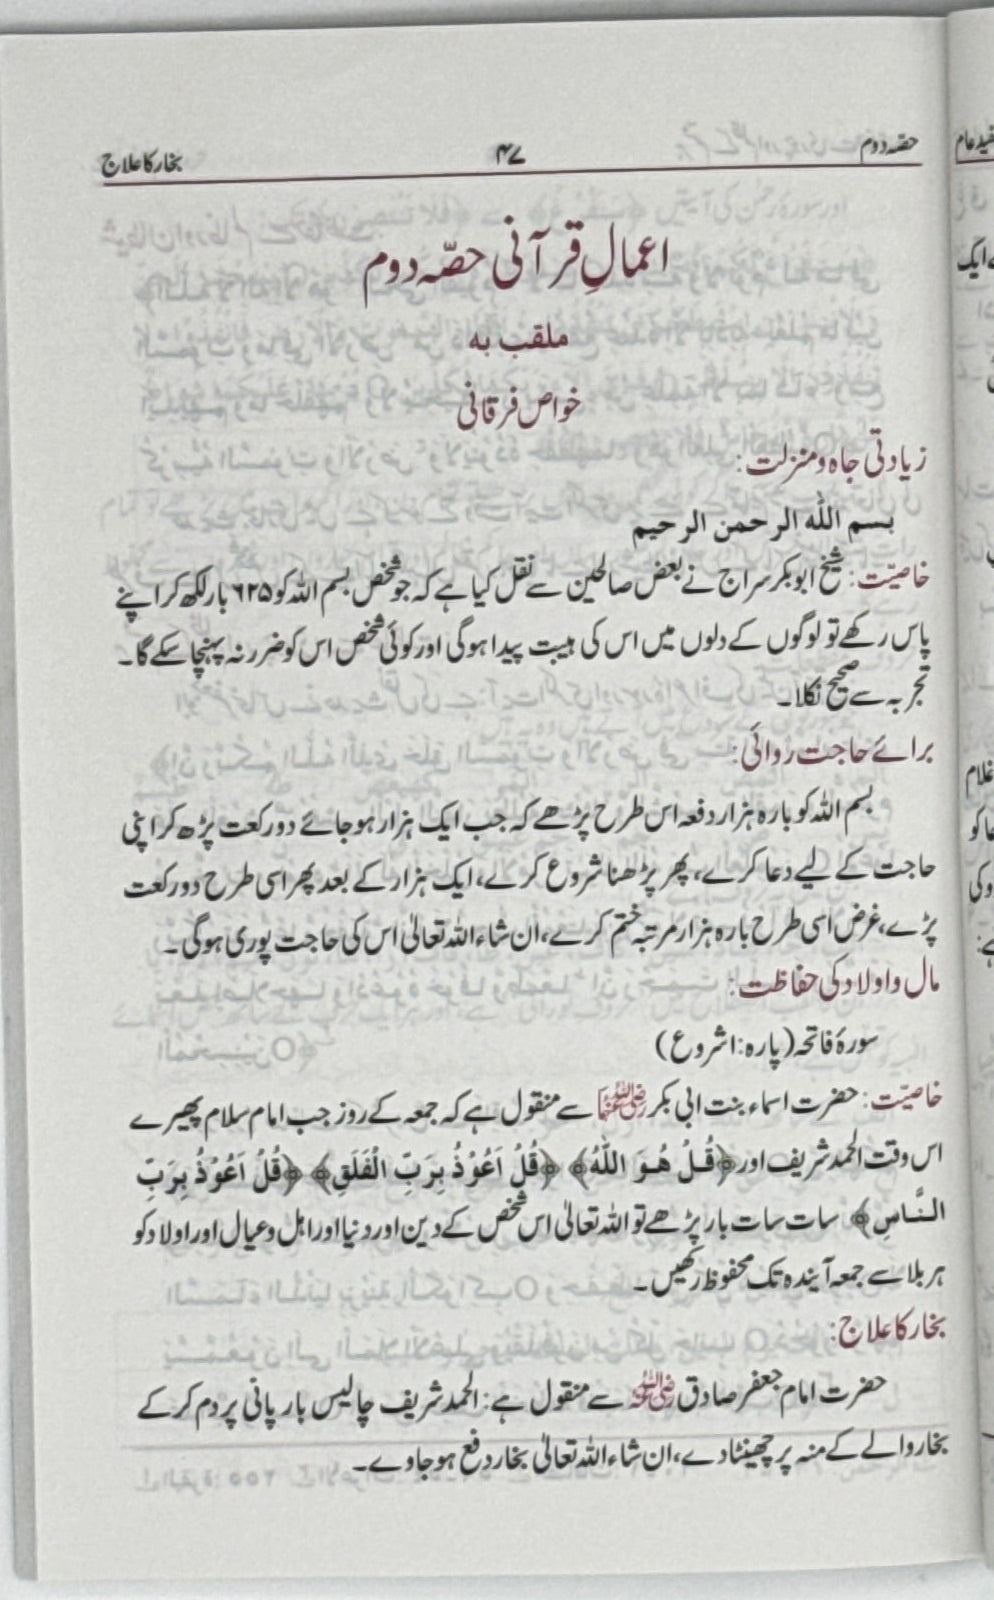 حصّہ دوم ۴۷ بخار کا علاج
اعمالِ قرآنی حصّہ دوم
ملقب بہ
خواص فرقانی
زیادتی جاہ و منزلت:
بسم الله الرحمن الرحيم
خاصیّت: شیخ ابو بکر سراج نے بعض صالحین سے نقل کیا ہے کہ جو شخص بسم اللہ کو ۶۲۵ بار لکھ کر اپنے
پاس رکھے تو لوگوں کے دلوں میں اس کی ہیبت پیدا ہوگی اور کوئی شخص اس کو ضرر نہ پہنچا سکے گا۔
تجربہ سے صحیح نکلا۔
برائے حاجت روائی:
بسم اللہ کو بارہ ہزار دفعہ اس طرح پڑھے کہ جب ایک ہزار ہو جائے دو رکعت پڑھ کر اپنی
حاجت کے لیے دعا کرے، پھر پڑھنا شروع کرے، ایک ہزار کے بعد پھر اسی طرح دو رکعت
پڑے، غرض اسی طرح بارہ ہزار مرتبہ ختم کرے، ان شاء اللہ تعالیٰ اس کی حاجت پوری ہوگی۔
مال و اولاد کی حفاظت:
سورۂ فاتحہ (پارہ: ۱ شروع)
خاصیّت: حضرت اسماء بنت ابی بکر رضی اللہ عنہما سے منقول ہے کہ جمعہ کے روز جب امام سلام پھیرے
اس وقت الحمد شریف اور ﴿قُلْ هُوَ اللّٰهُ﴾ ﴿قُلْ اَعُوْذُ بِرَبِّ الْفَلَقِ﴾ ﴿قُلْ اَعُوْذُ بِرَبِّ
النَّاسِ﴾ سات سات بار پڑھے تو اللہ تعالیٰ اس شخص کے دین اور دنیا اور اہل و عیال اور اولاد کو
ہر بلا سے جمعہ آیندہ تک محفوظ رکھیں۔
بخار کا علاج:
حضرت امام جعفر صادق رضی اللہ عنہ سے منقول ہے: الحمد شریف چالیس بار پانی پر دم کر کے
بخار والے کے منہ پر چھینٹا دے، ان شاء اللہ تعالیٰ بخار دفع ہو جاوے۔